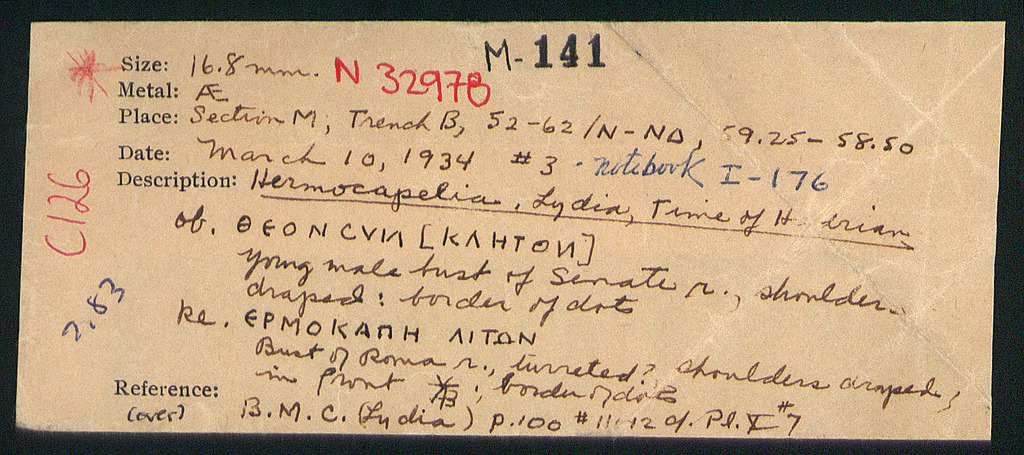 M-141
Size: 16.8 mm. N 32978
Metal: Æ
Place: Section M, Trench B, 52-62/N-ND, 59.25-58.50
Date: March 10, 1934 #3 - notebook I-176
Description: Hermocapelia, Lydia, Time of H drian
C126
ob. ΘΕΟΝ CVΝ [ΚΛΗΤΟΝ]
young male bust of Senate r., shoulder
draped: border of dots
2.83
Re. ΕΡΜΟΚΑΠΗ ΛΙΤΩΝ
Bust of Roma r., turreted? shoulders draped;
in front ; border of dots
Reference: B.M.C. (Lydia) p.100 #11-12 cf. Pl. X #7
(over)